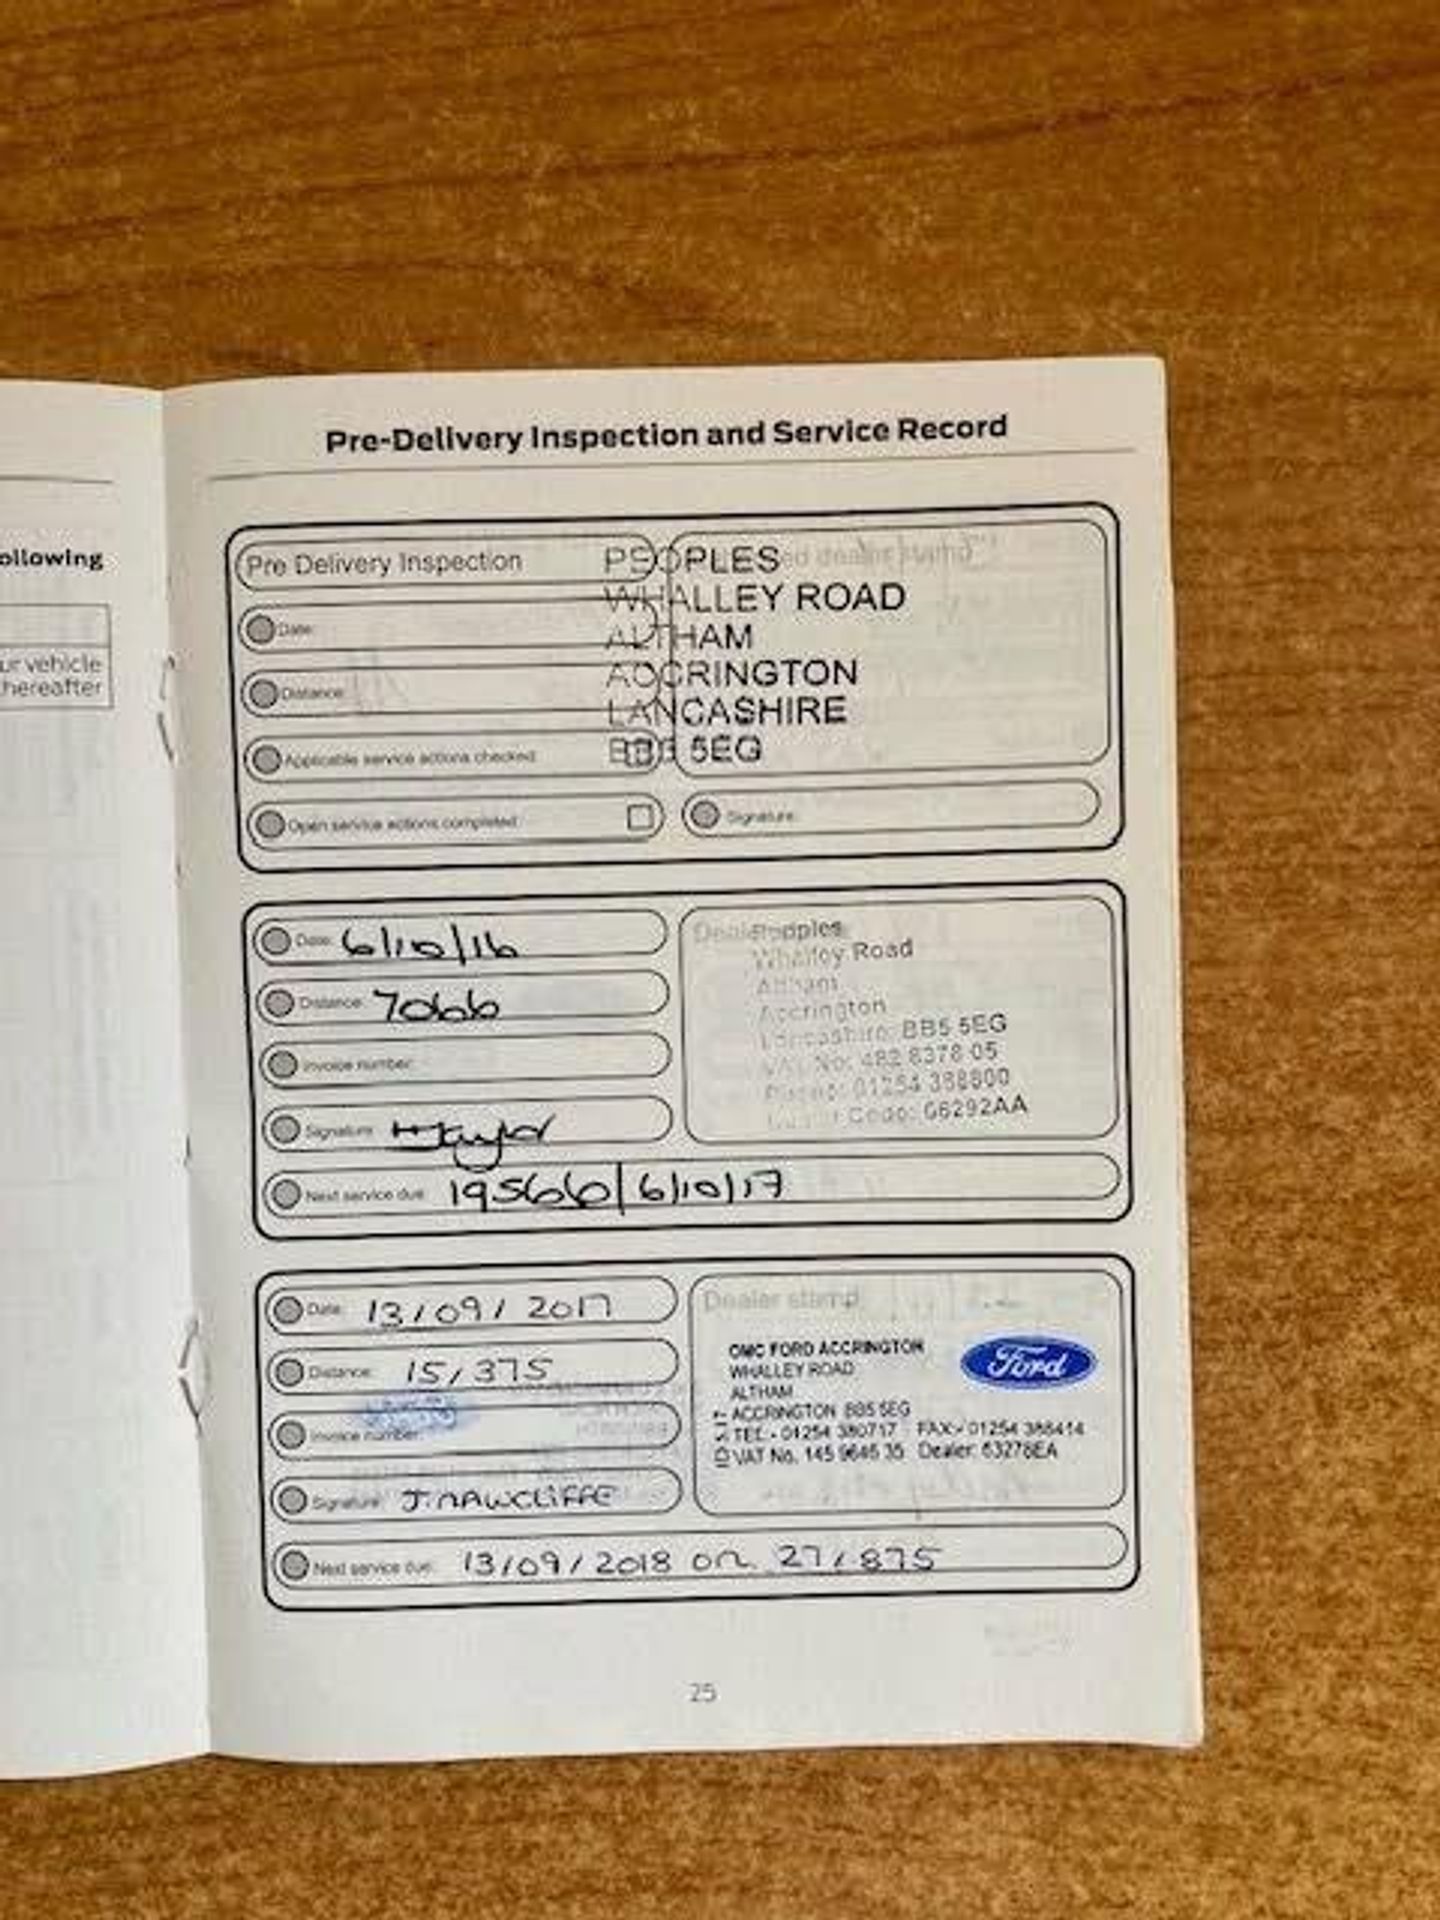 ollowing
ur vehicle
hereafter
Pre-Delivery Inspection and Service Record
Pre Delivery Inspection
ed dealer stamp
PEOPLES
WHALLEY ROAD
ALTHAM
ACCRINGTON
LANCASHIRE
BB5 5EG
Date:
Distance:
Applicable service actions checked:
Open service actions completed:
Signature:
Date: 6/10/16
Distance: 7066
Invoice number:
Signature: Taylor
Next service due: 19566/6/10/17
Peoples
Whalley Road
Altham
Accrington
Lancashire BB5 5EG
VAT No: 482 8378 05
Phone: 01254 388800
Code: 06292AA
Date: 13/09/2017
Distance: 15,375
Invoice number:
Signature: J.RAWCLIFFE
Next service due: 13/09/2018 OR 27,875
Dealer stamp
OMC FORD ACCRINGTON
WHALLEY ROAD
ALTHAM
ACCRINGTON BB5 5EG
TEL:- 01254 380717 FAX:- 01254 388414
VAT No. 145 9646 35 Dealer: 63278EA
Ford
25